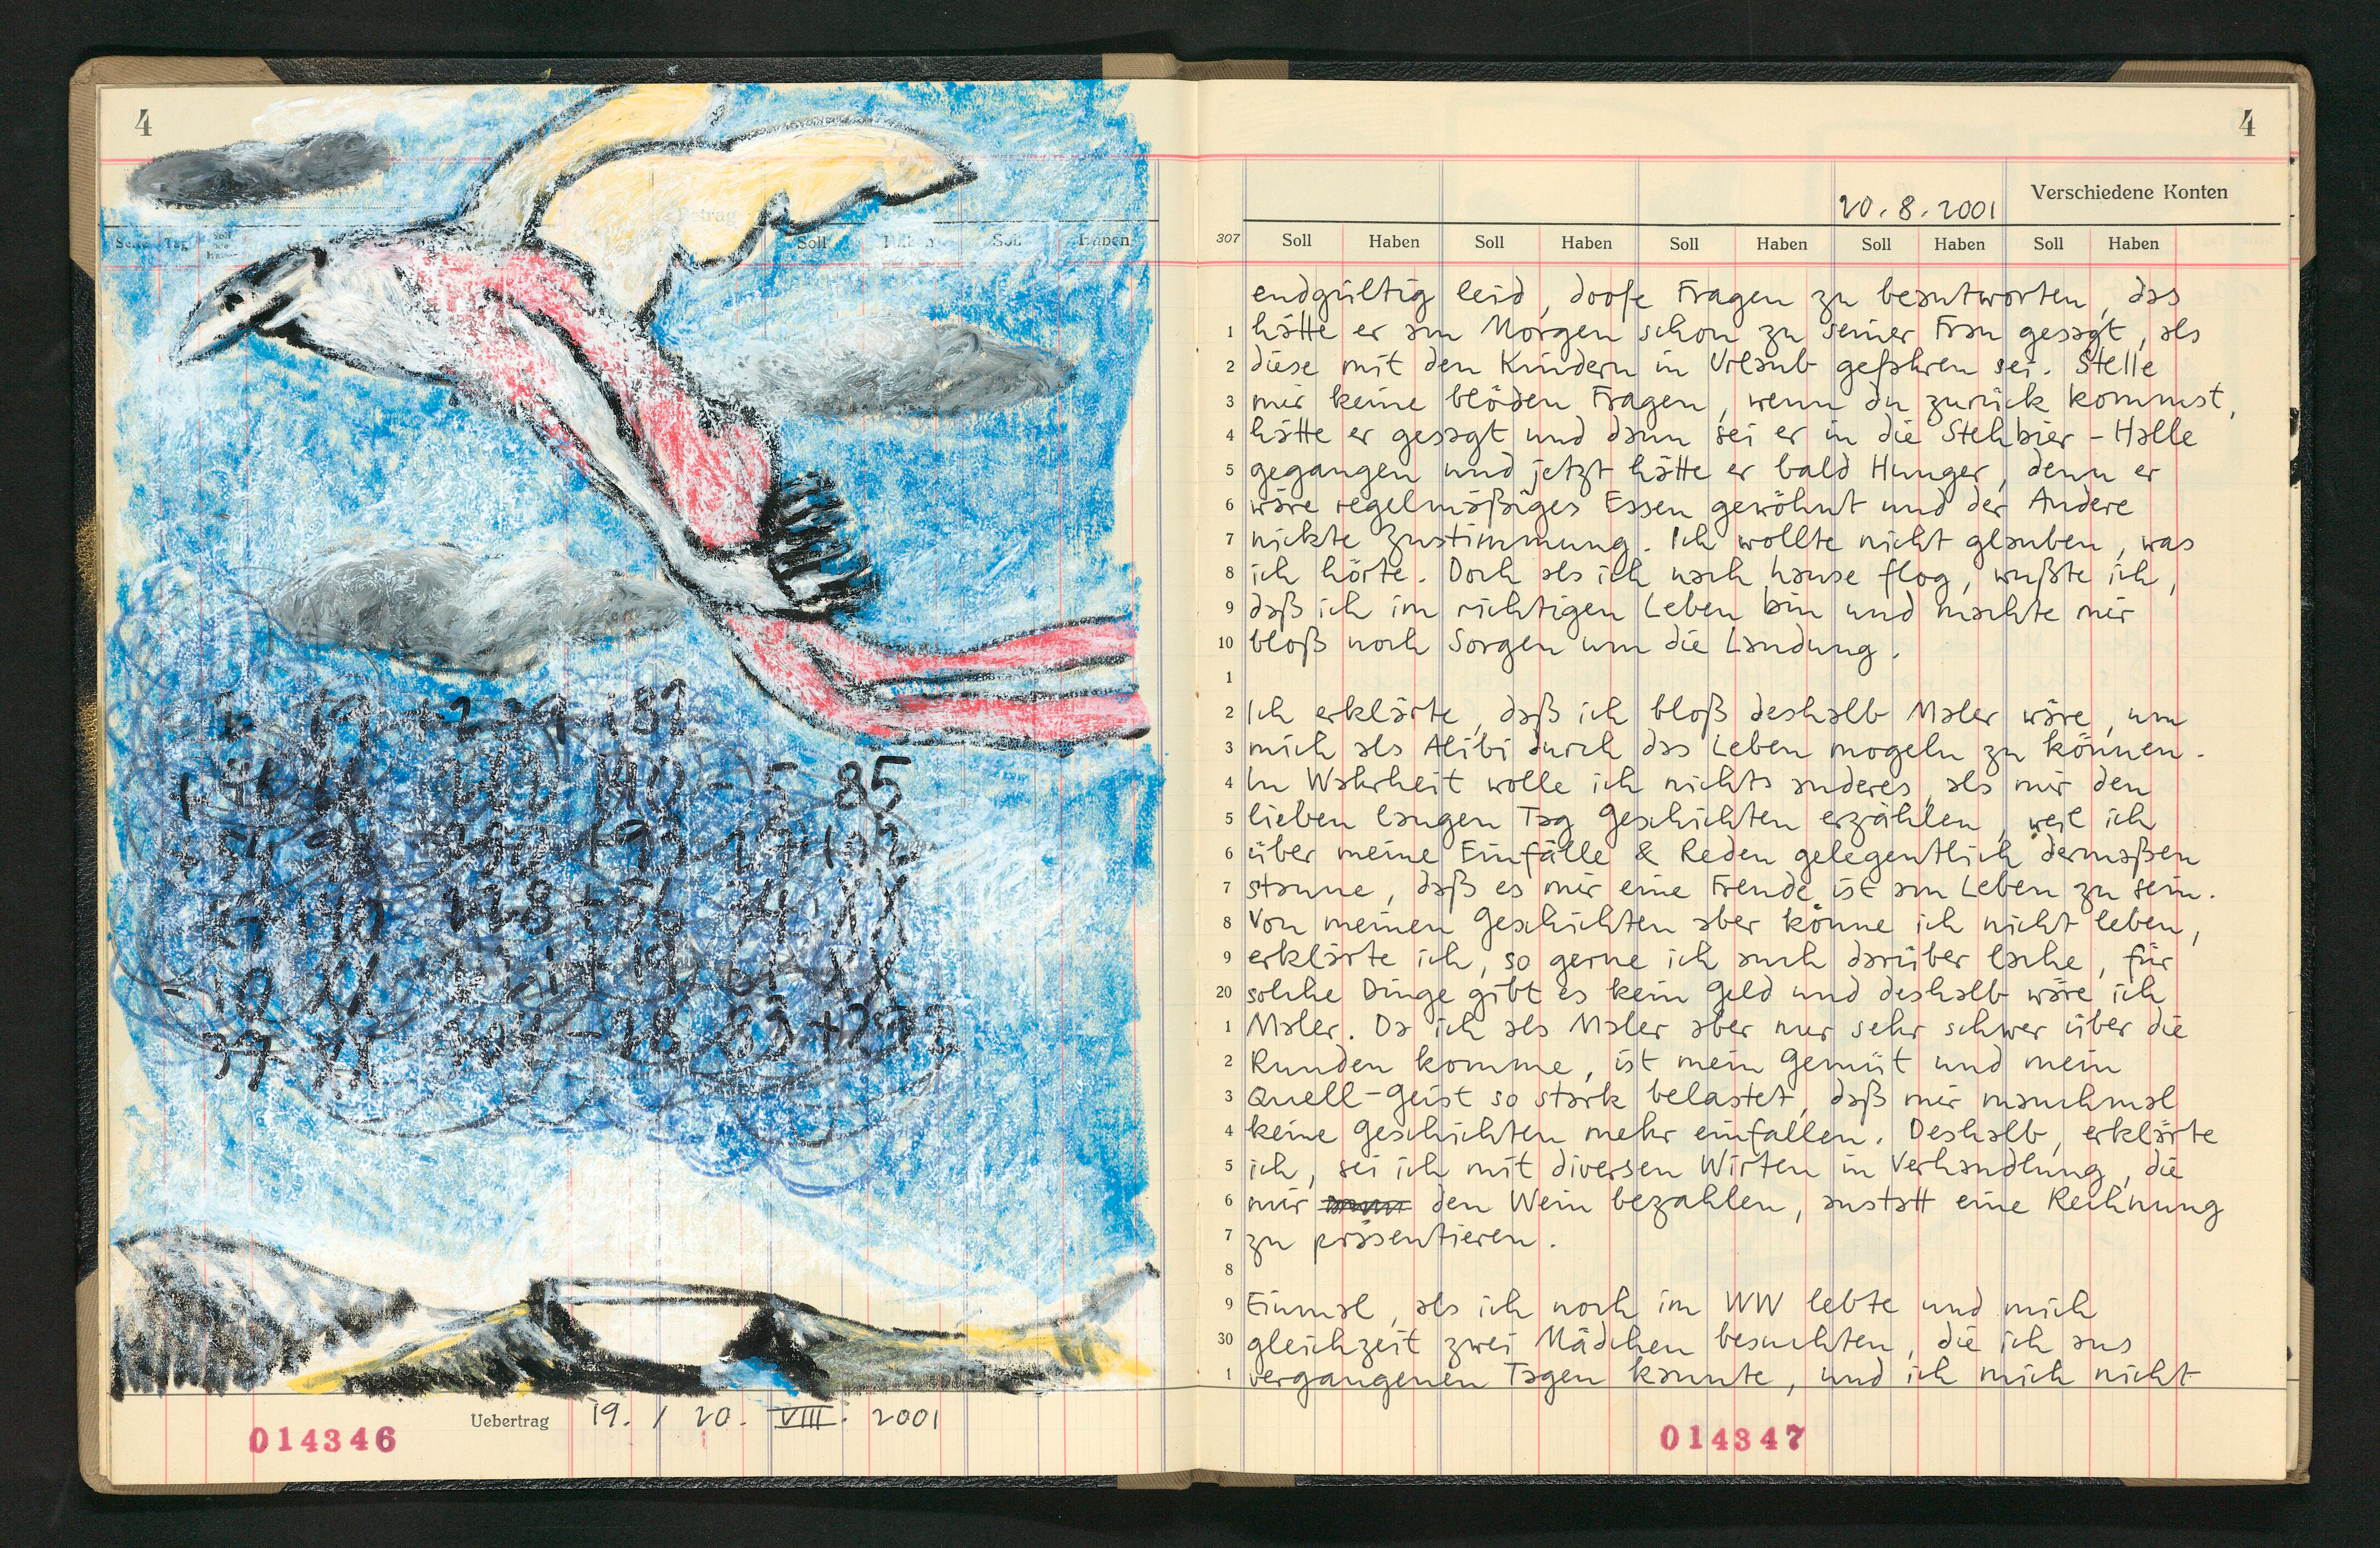 4
Betrag
Soll
Haben
Soll
Haben
85
Uebertrag 19. / 20. VIII. 2001
014346
4
20.8.2001 Verschiedene Konten
307 Soll Haben Soll Haben Soll Haben Soll Haben Soll Haben
endgültig leid, doofe Fragen zu beantworten, das
1 hätte er am Morgen schon zu seiner Frau gesagt, als
2 diese mit den Kindern in Urlaub gefahren sei. Stelle
3 mir keine blöden Fragen, wenn du zurück kommst,
4 hätte er gesagt und dann sei er in die Stehbier-Halle
5 gegangen und jetzt hätte er bald Hunger, denn er
6 wäre regelmäßiges Essen gewöhnt und der Andere
7 nickte Zustimmung. Ich wollte nicht glauben, was
8 ich hörte. Doch als ich nach hause flog, wußte ich,
9 daß ich im richtigen Leben bin und machte mir
10 bloß noch Sorgen um die Landung.
1
2 Ich erklärte, daß ich bloß deshalb Maler wäre, um
3 mich als Alibi durch das Leben mogeln zu können.
4 In Wahrheit wolle ich nichts anderes, als mir den
5 lieben langen Tag Geschichten erzählen, weil ich
6 über meine Einfälle & Reden gelegentlich dermaßen
7 staune, daß es mir eine Freude ist am Leben zu sein.
8 Von meinen Geschichten aber könne ich nicht leben,
9 erklärte ich, so gerne ich auch darüber lache, für
20 solche Dinge gibt es kein Geld und deshalb wäre ich
1 Maler. Da ich als Maler aber nur sehr schwer über die
2 Runden komme, ist mein Gemüt und mein
3 Quell-Geist so stark belastet, daß mir manchmal
4 keine Geschichten mehr einfallen. Deshalb, erklärte
5 ich, sei ich mit diversen Wirten in Verhandlung, die
6 mir den Wein bezahlen, anstatt eine Rechnung
7 zu präsentieren.
8
9 Einmal, als ich noch im WW lebte und mich
30 gleichzeit zwei Mädchen besuchten, die ich aus
1 vergangenen Tagen kannte, und ich mich nicht
014347